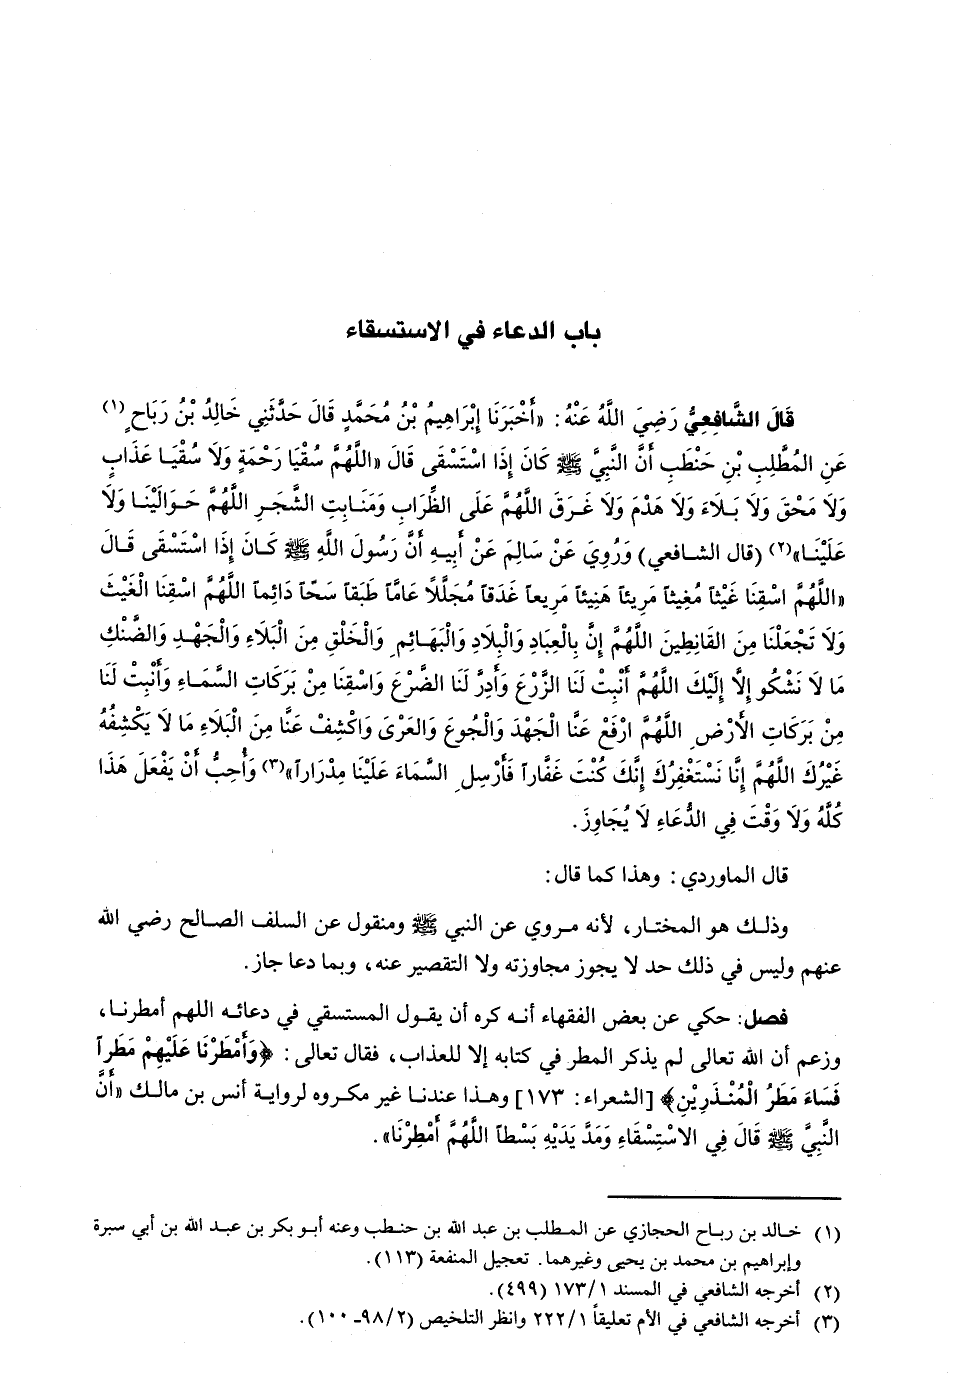 باب الدعاء في الاستسقاء
قَالَ الشَّافِعِيُّ رَضِيَ اللَّهُ عَنْهُ: «أَخْبَرَنَا إِبْرَاهِيمُ بْنُ مُحَمَّدٍ قَالَ حَدَّثَنِي خَالِدُ بْنُ رَبَاحٍ(١)
عَنِ المُطَّلِبِ بْنِ حَنْطَبِ أَنَّ النَّبِيَّ ﷺ كَانَ إِذَا اسْتَسْقَى قَالَ «اللَّهُمَّ سُقْيَا رَحْمَةٍ وَلَا سُقْيَا عَذَابٍ
وَلَا مَحْقَ وَلَا بَلَاءَ وَلَا هَدْمَ وَلَا غَرَقَ اللَّهُمَّ عَلَى الظِّرَابِ وَمَنَابِتِ الشَّجَرِ اللَّهُمَّ حَوَالَيْنَا وَلَا
عَلَيْنَا»(٢) (قال الشافعي) وَرُوِيَ عَنْ سَالِمَ عَنْ أَبِيهِ أَنَّ رَسُولَ اللَّهِ ﷺ كَانَ إِذَا اسْتَسْقَى قَالَ
«اللَّهُمَّ اسْقِنَا غَيْثاً مُغِيثاً مَرِيئاً هَنِيئاً مَرِيعاً غَدَقاً مُجَلَّلاً عَامّاً طَبَقاً سَحّاً دَائِماً اللَّهُمَّ اسْقِنَا الْغَيْثَ
وَلَا تَجْعَلْنَا مِنَ القَانِطِينَ اللَّهُمَّ إِنَّ بِالْعِبَادِ وَالْبِلَادِ وَالْبَهَائِمِ وَالْخَلْقِ مِنَ الْبَلَاءِ وَالْجَهْدِ وَالضَّنْكِ
مَا لَا نَشْكُو إِلَّا إِلَيْكَ اللَّهُمَّ أَنْبِتْ لَنَا الزَّرْعَ وَأَدِرَّ لَنَا الضَّرْعَ وَاسْقِنَا مِنْ بَرَكَاتِ السَّمَاءِ وَأَنْبِتْ لَنَا
مِنْ بَرَكَاتِ الأَرْضِ اللَّهُمَّ ارْفَعْ عَنَّا الْجَهْدَ وَالْجُوعَ وَالعَرْىَ وَاكْشِفْ عَنَّا مِنَ الْبَلَاءِ مَا لَا يَكْشِفُهُ
غَيْرُكَ اللَّهُمَّ إِنَّا نَسْتَغْفِرُكَ إِنَّكَ كُنْتَ غَفَّاراً فَأَرْسِلِ السَّمَاءَ عَلَيْنَا مِدْرَاراً»(٣) وَأُحِبُّ أَنْ يَفْعَلَ هَذَا
كُلَّهُ وَلَا وَقْتَ فِي الدُّعَاءِ لَا يُجَاوِزَ.
قال الماوردي: وهذا كما قال:
وذلك هو المختار، لأنه مروي عن النبي ﷺ ومنقول عن السلف الصالح رضي الله
عنهم وليس في ذلك حد لا يجوز مجاوزته ولا التقصير عنه، وبما دعا جاز.
فصل: حكي عن بعض الفقهاء أنه كره أن يقول المستسقي في دعائه اللهم أمطرنا،
وزعم أن الله تعالى لم يذكر المطر في كتابه إلا للعذاب، فقال تعالى: ﴿وَأَمْطَرْنَا عَلَيْهِمْ مَطَراً
فَسَاءَ مَطَرُ الْمُنْذَرِيْنِ﴾ [الشعراء: ١٧٣] وهذا عندنا غير مكروه لرواية أنس بن مالك «أَنَّ
النَّبِيَّ ﷺ قَالَ فِي الاسْتِسْقَاءِ وَمَدَّ يَدَيْهِ بَسْطاً اللَّهُمَّ أَمْطِرْنَا».
(١) خالد بن رباح الحجازي عن المطلب بن عبد الله بن حنطب وعنه أبو بكر بن عبد الله بن أبي سبرة
وإبراهيم بن محمد بن يحيى وغيرهما. تعجيل المنفعة (١١٣).
(٢) أخرجه الشافعي في المسند ١/١٧٣ (٤٩٩).
(٣) أخرجه الشافعي في الأم تعليقاً ١/٢٢٢ وانظر التلخيص (٢/٩٨ـ ١٠٠).